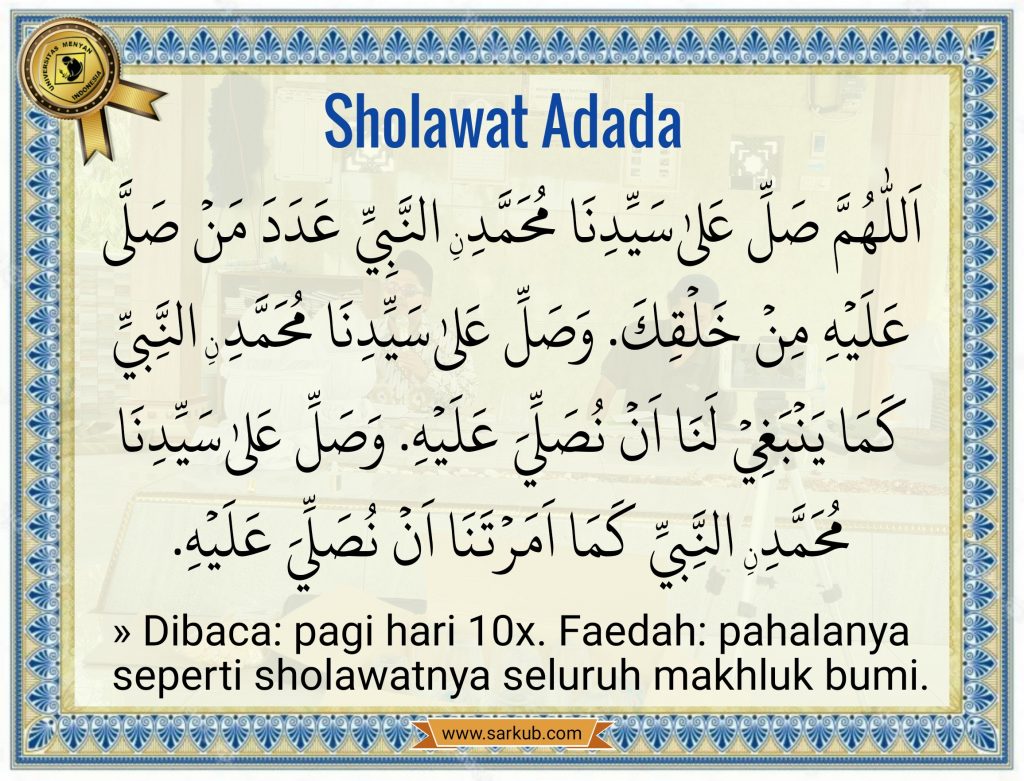 UNIVERSITAS MENYAN
INDONESIA
Sholawat Adada
اَللّٰهُمَّ صَلِّ عَلٰى سَيِّدِنَا مُحَمَّدِ نِ النَّبِيِّ عَدَدَ مَنْ صَلَّى
عَلَيْهِ مِنْ خَلْقِكَ. وَصَلِّ عَلٰى سَيِّدِنَا مُحَمَّدِ نِ النَّبِيِّ
كَمَا يَنْبَغِيْ لَنَا اَنْ نُصَلِّيَ عَلَيْهِ. وَصَلِّ عَلٰى سَيِّدِنَا
مُحَمَّدِ نِ النَّبِيِّ كَمَا اَمَرْتَنَا اَنْ نُصَلِّيَ عَلَيْهِ.
» Dibaca: pagi hari 10x. Faedah: pahalanya
seperti sholawatnya seluruh makhluk bumi.
www.sarkub.com